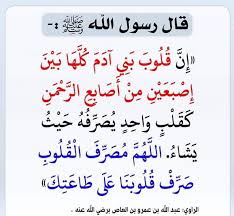 قال رسول الله ﷺ :-
«إِنَّ قُلُوبَ بَنِي آدَمَ كُلَّهَا بَيْنَ
إِصْبَعَيْنِ مِنْ أَصَابِعِ الرَّحْمَنِ
كَقَلْبٍ وَاحِدٍ يُصَرِّفُهُ حَيْثُ
يَشَاءُ. اللَّهُمَّ مُصَرِّفَ الْقُلُوبِ
صَرِّفْ قُلُوبَنَا عَلَى طَاعَتِكَ»
الراوي: عبد الله بن عمرو بن العاص برضي الله عنه .